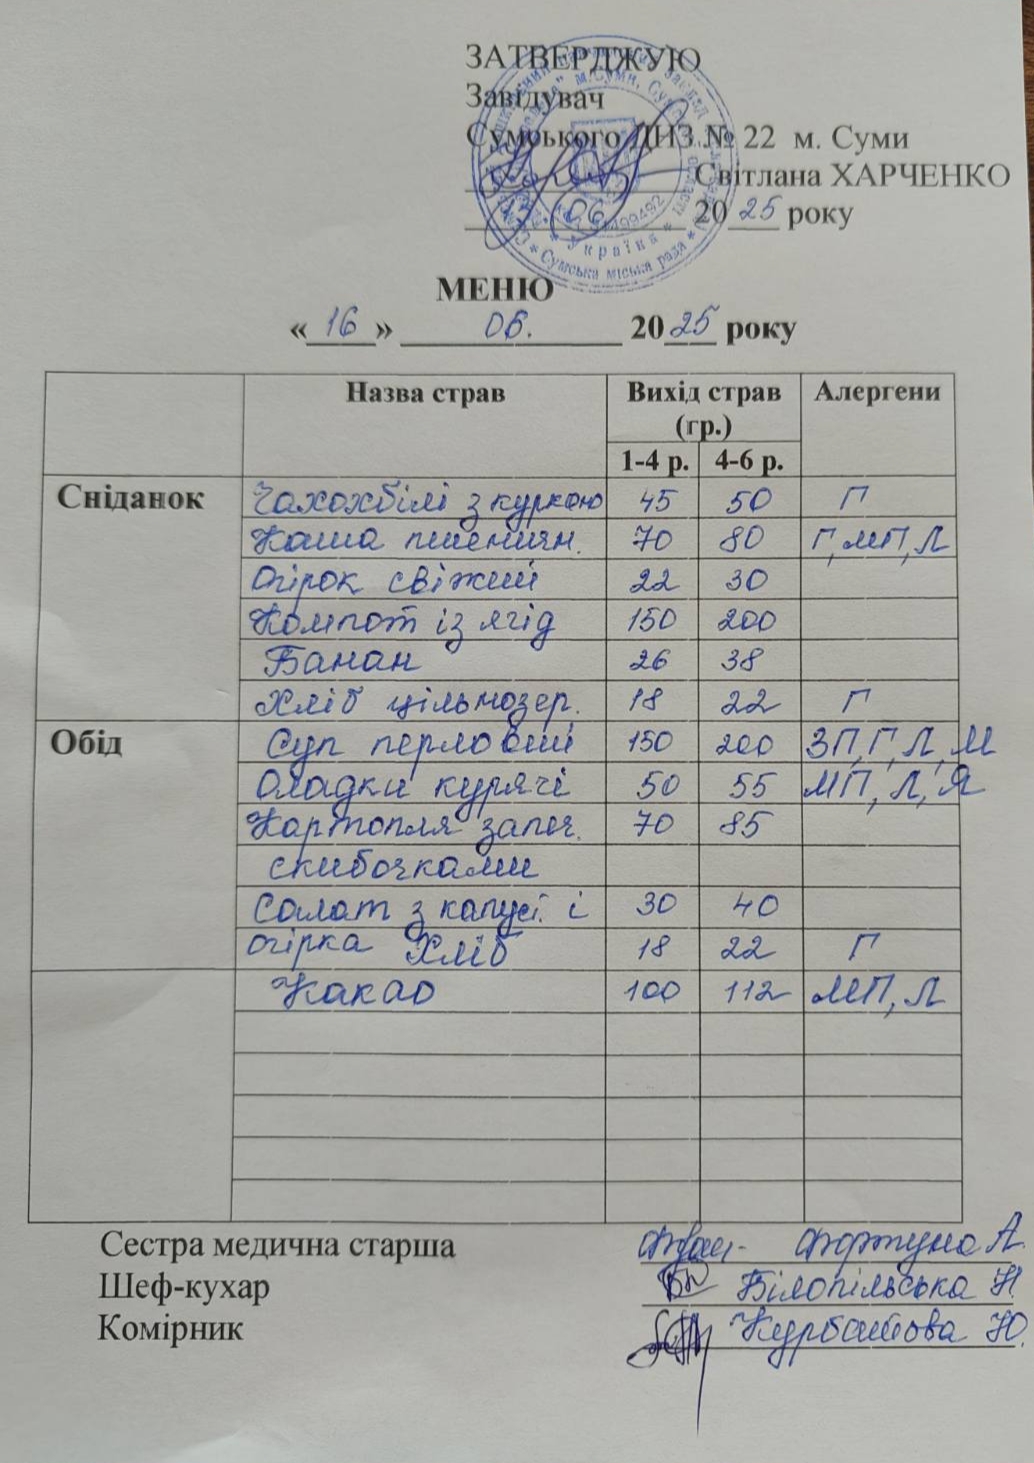 ЗАТВЕРДЖУЮ
Завідувач
Сумського ДНЗ № 22 м. Суми
Світлана ХАРЧЕНКО
2025 року
МЕНЮ
«16» 06. 2025 року
Назва страв Вихід страв (гр.) Алергени
1-4 р. 4-6 р.
Сніданок Чахохбілі з куркою 45 50 Г
Каша пшеничн. 70 80 Г, МП, Л
Огірок свіжий 22 30
Компот із ягід 150 200
Банан 26 38
Хліб цільнозер. 18 22 Г
Обід Суп перловий 150 200 ЗП, Г, Л, М
Оладки курячі 50 55 МП, Л, Я
Картопля запеч. 70 85
скибочками
Салат з капусі. і 30 40
огірка Хліб 18 22 Г
Какао 100 112 МП, Л
Сестра медична старша Фортуна А.
Шеф-кухар Білопільська Н.
Комірник Курбатова Ю.